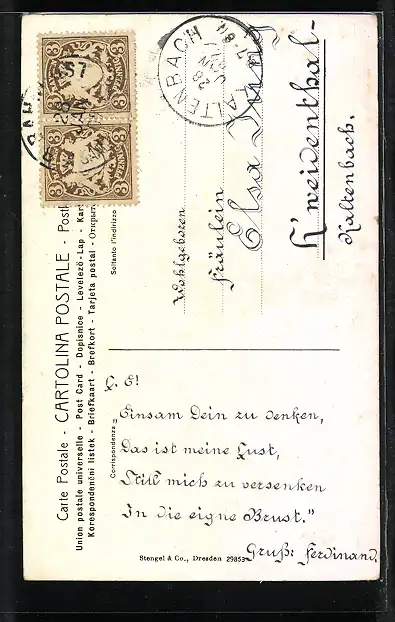 Carte Postale - CARTOLINA POSTALE -
Union postale universelle - Post Card - Dopisnice - Levelező-Lap -
Korespondenční listek - Briefkaart - Brefkort - Tarjeta postal -
Soltanto l'indirizzo
Corrispondenza
3 PFENNIG 3
3 PFENNIG 3
KALTENBACH
28
JAN
Wohlgeboren
Fräulein
Elsa
H'weidenthal-
Kaltenbach.
L. E!
Einsam Dein zu denken,
Das ist meine Lust,
Still mich zu versenken
In die eigne Brust."
Gruß: Ferdinand.
Stengel & Co., Dresden 29853